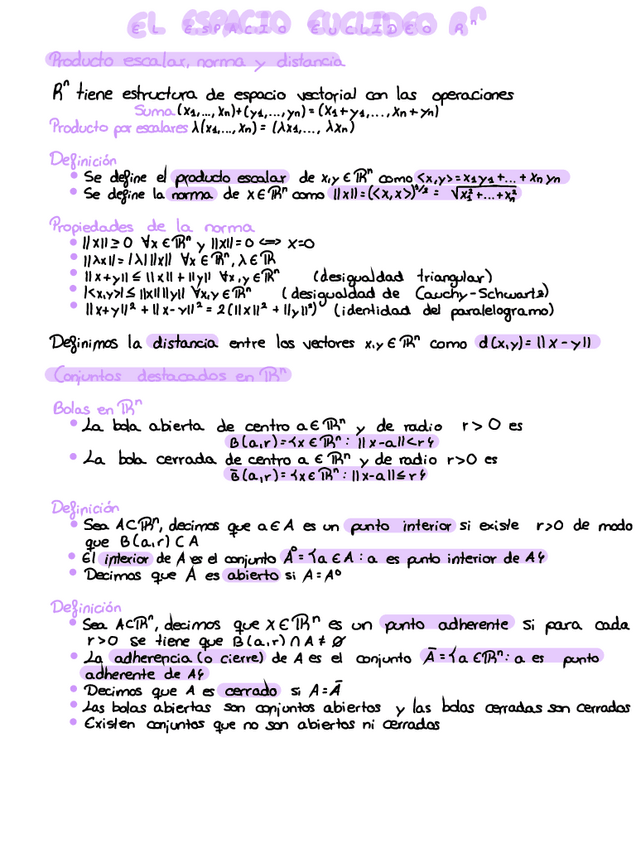 EL ESPACIO EUCLIDEO Rⁿ
Producto escalar, norma y distancia
Rⁿ tiene estructura de espacio vectorial con las operaciones
Suma (x₁,..., xₙ)+(y₁,...,yₙ) = (x₁+y₁,...,xₙ+yₙ)
Producto por escalares λ(x₁,..., xₙ) = (λx₁,..., λxₙ)
Definición
• Se define el producto escalar de x,y ∈ ℝⁿ como <x,y> = x₁y₁+...+xₙyₙ
• Se define la norma de x ∈ ℝⁿ como ||x|| = (<x,x>)^1/2 = √x₁²+...+xₙ²
Propiedades de la norma
• ||x|| ≥ 0 ∀x ∈ ℝⁿ y ||x|| = 0 <=> x=0
• ||λx|| = |λ| ||x|| ∀x ∈ ℝⁿ, λ ∈ ℝ
• ||x+y|| ≤ ||x|| + ||y|| ∀x,y ∈ ℝⁿ (desigualdad triangular)
• |<x,y>| ≤ ||x|| ||y|| ∀x,y ∈ ℝⁿ (desigualdad de Cauchy-Schwartz)
• ||x+y||² + ||x-y||² = 2(||x||² + ||y||²) (identidad del paralelogramo)
Definimos la distancia entre los vectores x,y ∈ ℝⁿ como d(x,y) = ||x-y||
Conjuntos destacados en ℝⁿ
Bolas en ℝⁿ
• La bola abierta de centro a ∈ ℝⁿ y de radio r > 0 es
B(a,r) = {x ∈ ℝⁿ : ||x-a|| < r}
• La bola cerrada de centro a ∈ ℝⁿ y de radio r>0 es
B̄(a,r) = {x ∈ ℝⁿ : ||x-a|| ≤ r}
Definición
• Sea A⊂ℝⁿ, decimos que a ∈ A es un punto interior si existe r>0 de modo
que B(a,r) ⊂ A
• El interior de A es el conjunto Å = {a ∈ A : a es punto interior de A}
• Decimos que A es abierto si A = A°
Definición
• Sea A⊂ℝⁿ, decimos que x ∈ ℝⁿ es un punto adherente si para cada
r>0 se tiene que B(a,r) ∩ A ≠ ∅
• La adherencia (o cierre) de A es el conjunto Ā = {a ∈ ℝⁿ : a es punto
adherente de A}
• Decimos que A es cerrado si A = Ā
• Las bolas abiertas son conjuntos abiertos y las bolas cerradas son cerrados
• Existen conjuntos que no son abiertos ni cerrados